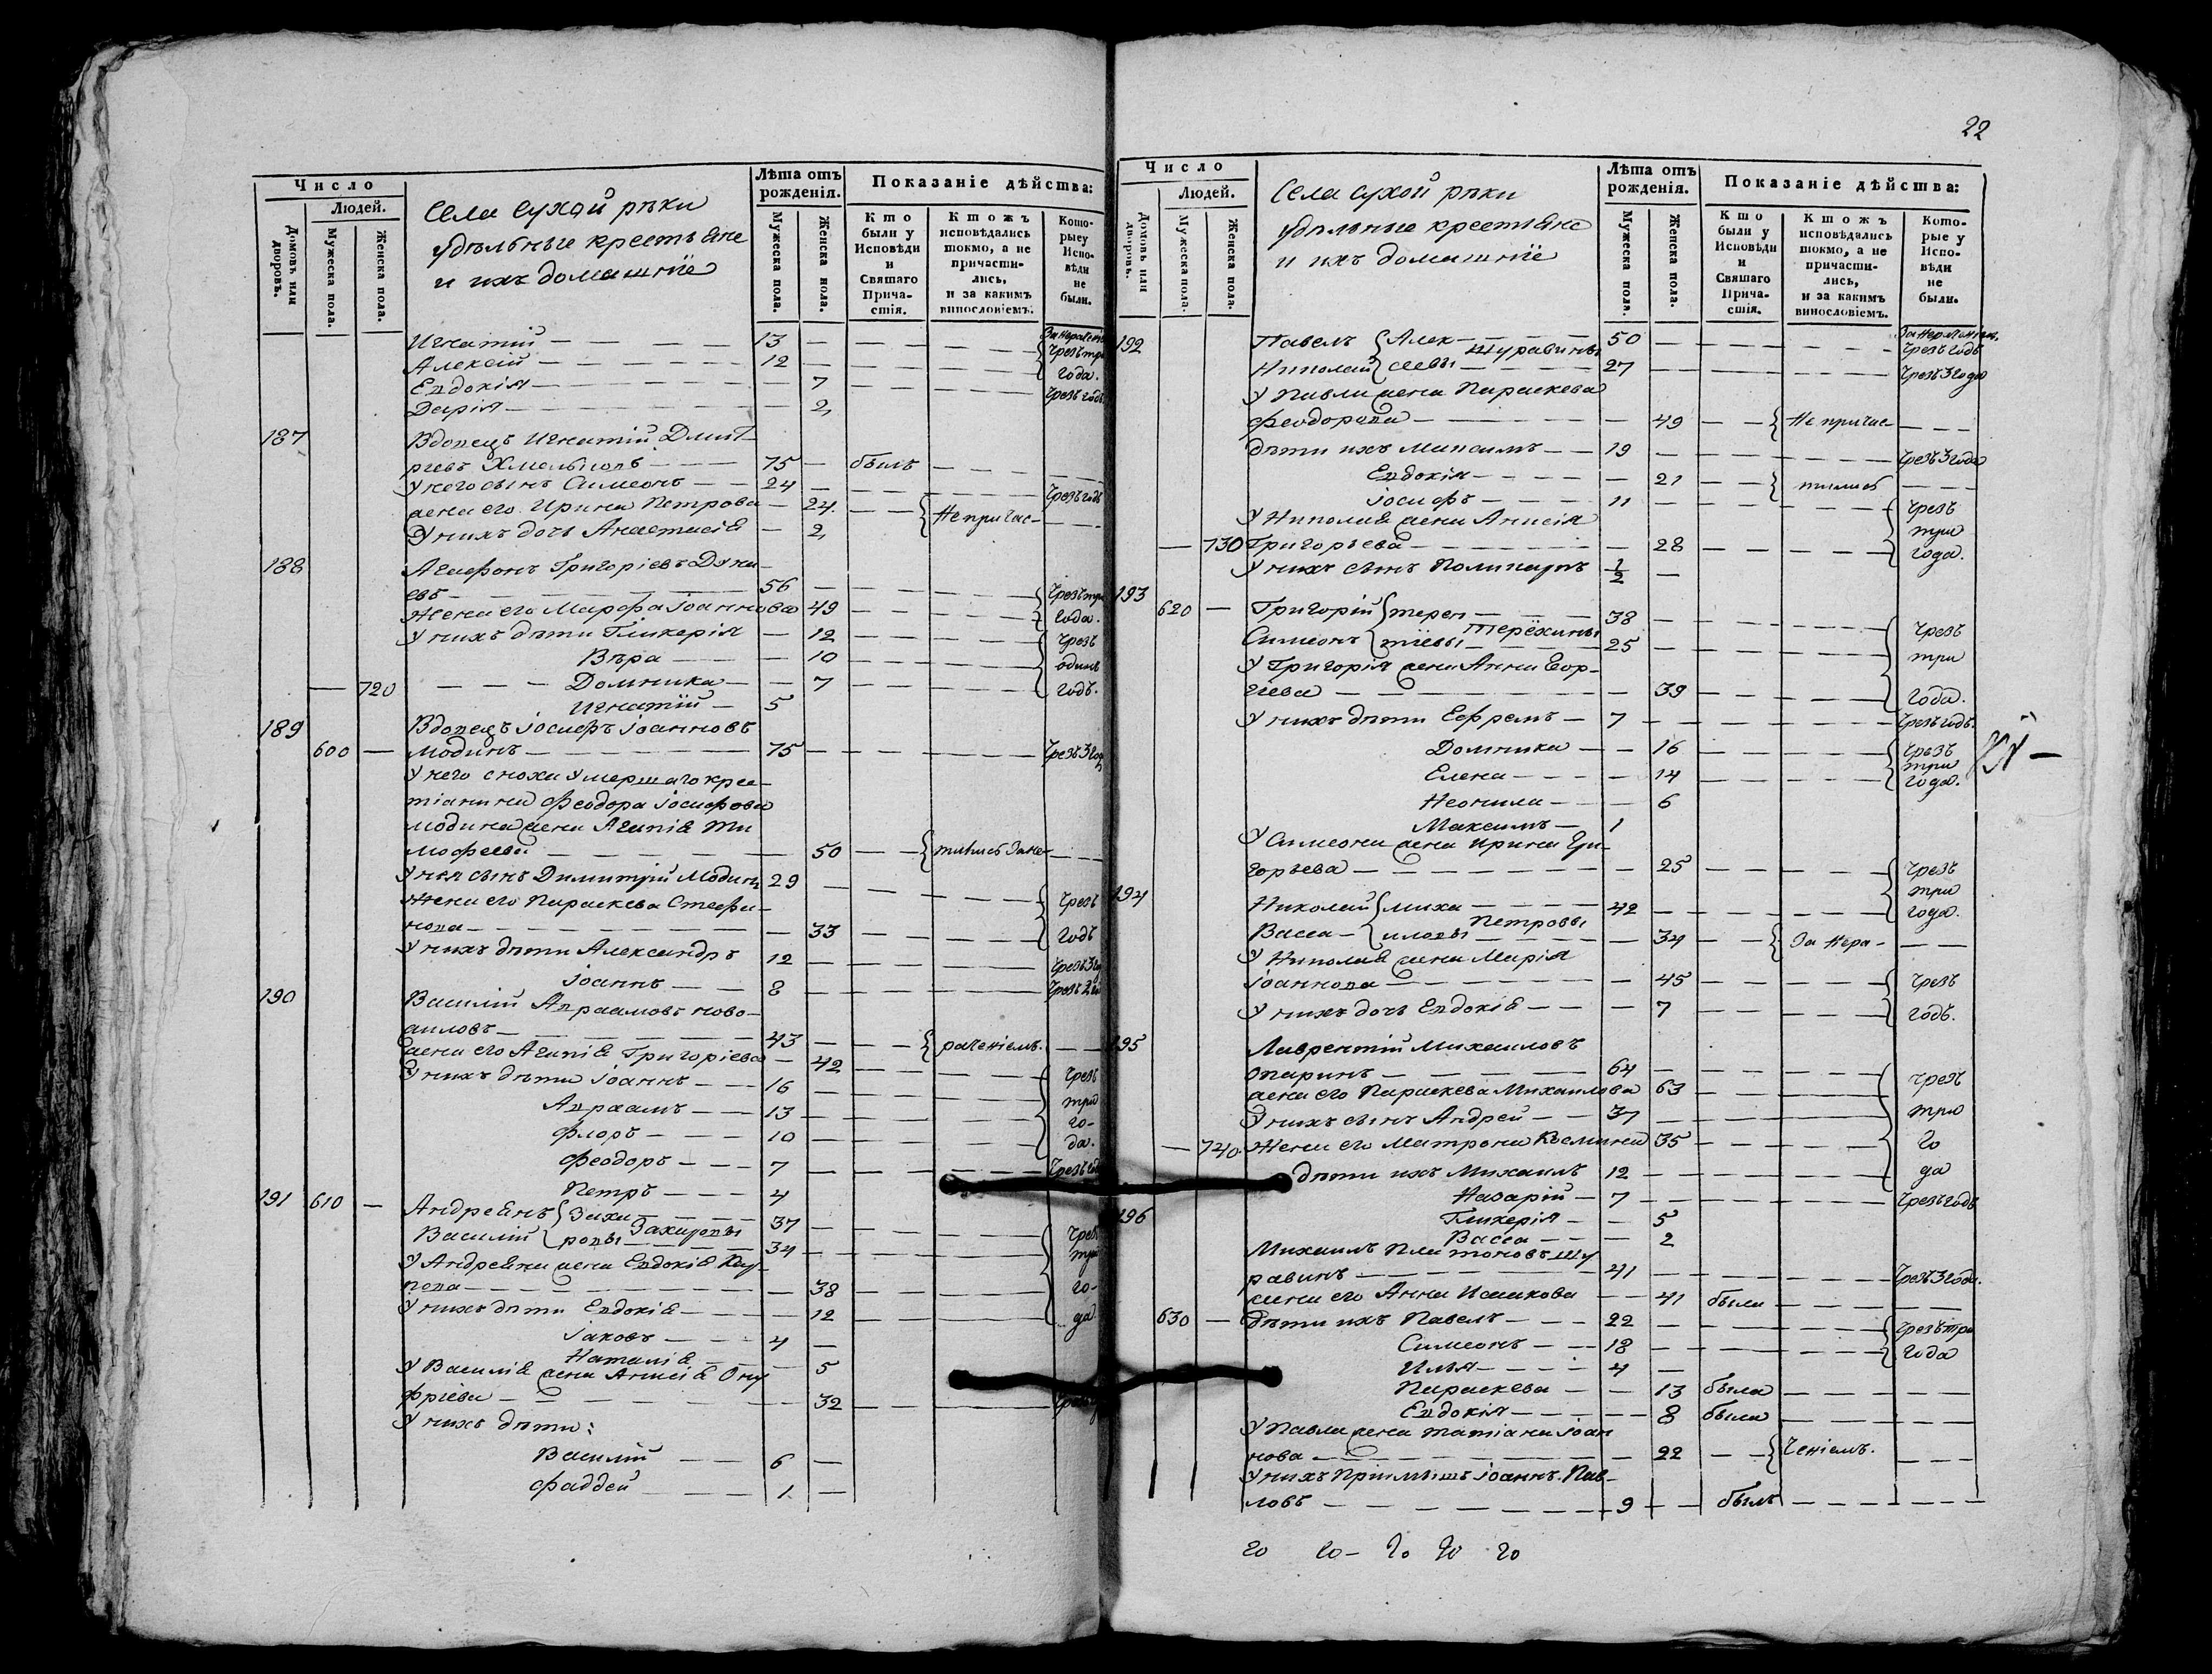 Число
Людей.
Домовъ или дворовъ.
Мужеска пола.
Женска пола.
Села Сухой рѣки
удѣльные крестьяне
и ихъ домашніе
Лѣта отъ рожденія.
Мужеска пола.
Женска пола.
Показаніе дѣйства:
Кто были у Исповѣди и Святаго Причастія.
Ктожъ исповѣдались токмо, а не причастились, и за какимъ винословіемъ.
Которые у Исповѣди не были.
Игнатій — 13
Алексій — 12 — Чрезъ три года.
Евдокія — 7 — Чрезъ годъ
Дарія — 2
187 Вдовецъ Игнатій Дмит-
ріевъ Хмельновъ — 75 — былъ
У него сынъ Симеонъ — 24 — Чрезъ годъ
жена его Ирина Петрова — 24 — Не причас-
У нихъ дочь Анастасія — 2
188 Агафонъ Григоріевъ Дуна-
евъ — 56 — Чрезъ три
Жена его Марфа Іоаннова 49 — года.
У нихъ дѣти Гликерія — 12 — Чрезъ
Вѣра — 10 — одинъ
— 720 Домника — 7 — годъ.
Игнатій — 5
189 Вдовецъ Іосифъ Іоанновъ
600 — Модинъ — 75 — Чрезъ 3 год
У него сноха умершаго крес-
тіанина Феодора Іосифова
Модина жена Агапія Ти
мофеева — 50 — тились за не-
У нея сынъ Димитрій Модинъ 29
Жена его Параскева Стефа- — Чрезъ
нова — 33 — годъ
У нихъ дѣти Александръ 12 — Чрезъ 3 го
Іоаннъ — 8 — Чрезъ 2
190 Василій Авраамовъ Ново-
— 43 — раченіемъ.
жена его Агапія Григоріева — 42
У нихъ дѣти Іоаннъ — 16 — Чрезъ
Авраамъ — 13 — три
Флоръ — 10 — го-
да.
Феодоръ — 7 — Чрезъ год
Петръ — 4
191 610 — Андреянъ { Заха — 37
Василій { ровы Захаровы — 34 — Чрезъ три
У Андреяна жена Евдокія Кар-
пова — 38 — го-
У нихъ дѣти Евдокія — 12 — да
Іаковъ — 4
Наталія — 5
У Василія жена Анисія Ону
фріева — 32
У нихъ дѣти:
Василій — 6
Фаддей — 1
22
Число
Людей.
Домовъ или дворовъ.
Мужеска пола.
Женска пола.
Села Сухой рѣки
удѣльные крестьяне
и ихъ домашніе
Лѣта отъ рожденія.
Мужеска пола.
Женска пола.
Показаніе дѣйства:
Кто были у Исповѣди и Святаго Причастія.
Ктожъ исповѣдались токмо, а не причастились, и за какимъ винословіемъ.
Которые у Исповѣди не были.
За нераченіемъ.
192 Павелъ { Алек- — 50 — Чрезъ годъ
Николай { сеевы Журавины — 27 — Чрезъ 3 года
У Павла жена Параскева
Феодорова — 49 — Не причас-
дѣти ихъ Максимъ — 19 — Чрезъ 3 года
Евдокія — 21 — тились
Іосифъ — 11 — Чрезъ
У Николая жена Анисія — три
— 730 Григорьева — 28 — года.
У нихъ сынъ Поликарпъ 1/2
193 620 — Григорій { Терен — 38 — Чрезъ
Симеонъ { тіевы Терёхины — 25 — три
У Григорія жена Анна Геор-
гіева — 39 — года.
У нихъ дѣти Ефремъ — 7 — Чрезъ годъ.
Домника — 16 — Чрезъ
Елена — 14 — три года.
Неонила — 6
Максимъ — 1
У Симеона жена Ирина Гри-
горьева — 25 — Чрезъ три
194 Николай { Миха — 42 — года.
Васса { иловы Петровы — 34 — За нера-
У Николая жена Марія
Іоаннова — 45 — Чрезъ
У нихъ дочь Евдокія — 7 — годъ.
195 Лаврентій Михаиловъ
Опаринъ — 64 — Чрезъ
жена его Параскева Михаилова 63
У нихъ сынъ Андрей — 37 — три
— 740. Жена его Матрона Космина 35 — го
дѣти ихъ Михаилъ 12 — да
Назарій — 7 — Чрезъ годъ
196 Гликерія — 5
Васса — 2
Михаилъ Платоновъ Жу
равинъ — 41 — Чрезъ 3 года.
жена его Анна Исаакова — 41 была
630 — дѣти ихъ Павелъ — 22 — Чрезъ три
Симеонъ — 18 — года
Илья — 4
Параскева — 13 была
Евдокія — 8 была
У Павла жена Татіана Іоан
нова — 22 — ченіемъ.
У нихъ пріимышъ Іоаннъ Пав-
ловъ — 9 — былъ
20 20 20 20 20